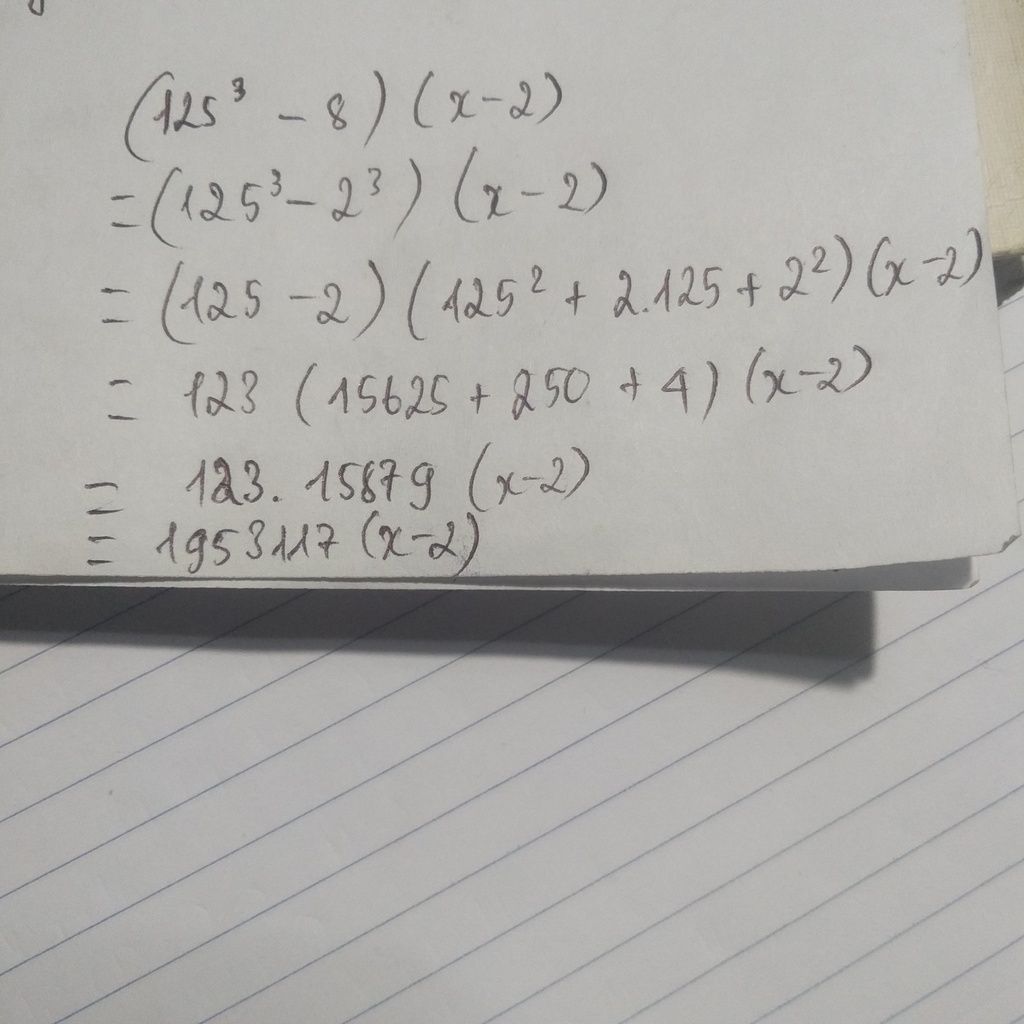 (125³ - 8) (x-2)
= (125³ - 2³) (x - 2)
= (125 - 2) (125² + 2.125 + 2²) (x-2)
= 123 (15625 + 250 + 4) (x-2)
= 123. 15879 (x-2)
= 1953117 (x-2)